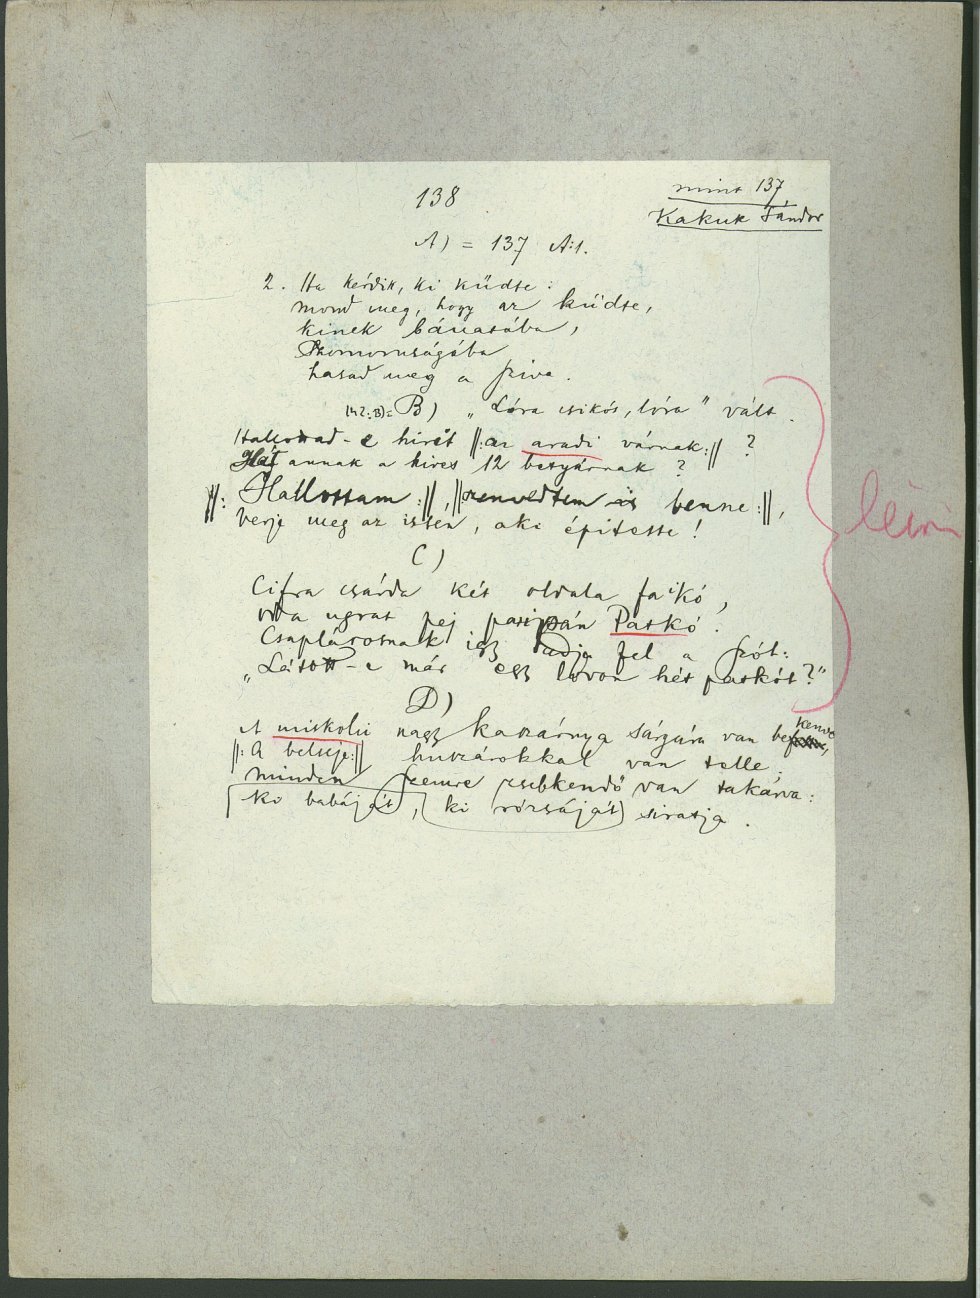 138
mint 137
Kakuk Sándor
A) = 137 A:1.
2. Ha kérdik, ki küdte:
mond meg, hogy az küdte,
kinek bánatába,
Szomoruságába
hasad meg a szive.
142:B)= B) „Lóra csikós, lóra" vált.
Hallottad-e hirét ||:az aradi várnak:|| ?
Hát annak a hires 12 betyárnak ?
||: Hallottam :||, ||:szenvedtem is benne :||,
Verje meg az isten, aki épitette!
C)
Cifra csárda két oldala fa'kó,
oda ugrat pej paripán Patkó.
Csaplárosnak igy adja fel a szót:
„Látott-e már egy lovon hét patkót?"
D)
A miskolci nagy kaszárnya sárgára van bekenve
||: A belseje:|| huszárokkal van telle.
Minden szemre zsebkendő van takarva:
ki babáját, ki rózsáját siratja.
leirni